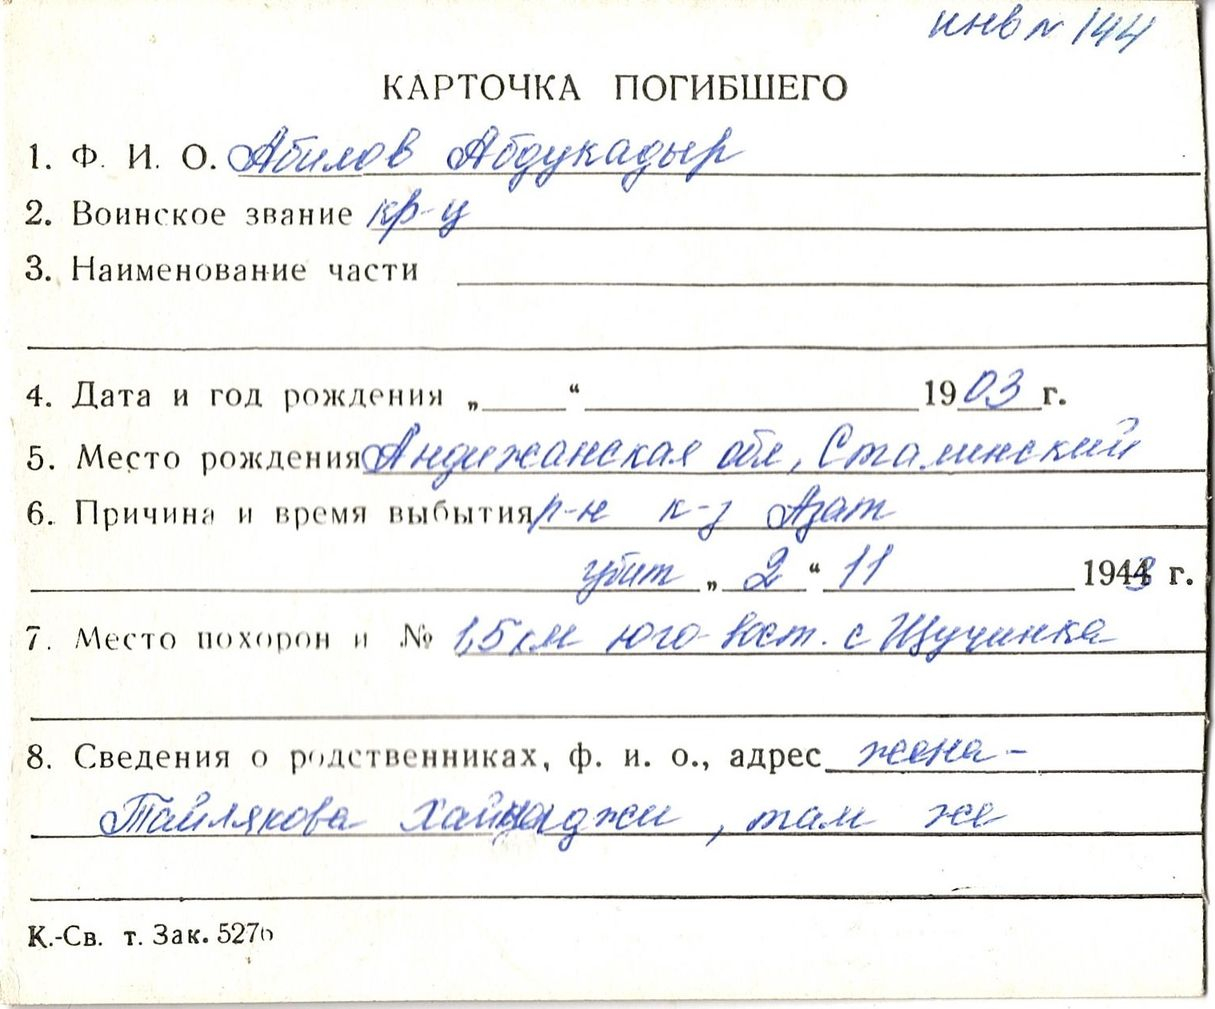 инв № 144
КАРТОЧКА ПОГИБШЕГО
1. Ф. И. О. Абилов Абдукадыр
2. Воинское звание кр-ц
3. Наименование части
4. Дата и год рождения „ “ 1903 г.
5. Место рождения Андижанская обл, Сталинский
6. Причина и время выбытия р-н к-з Азат
убит „ 2 “ 11 1943 г.
7. Место похорон и № 1,5 км юго-вост. с Щучинка
8. Сведения о родственниках, ф. и. о., адрес жена -
Тайлякова , там же
К.-Св. т. Зак. 5276